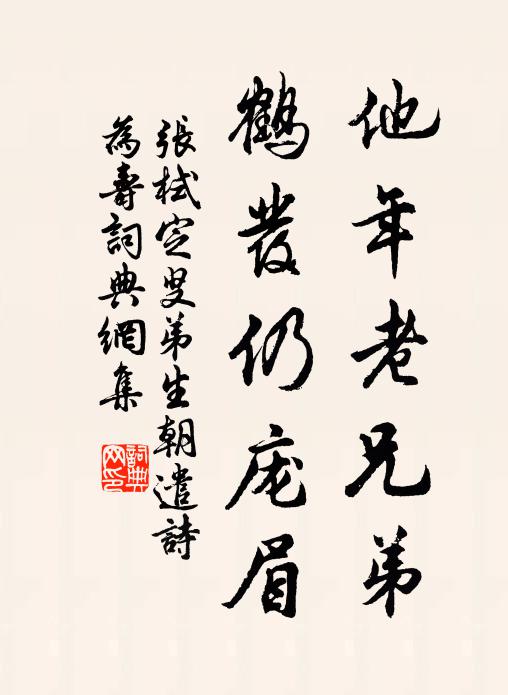 他年老兄弟
鶴發仍庬眉
張栻定叟弟生朝遣詩
為壽詞典網集
詞典網印